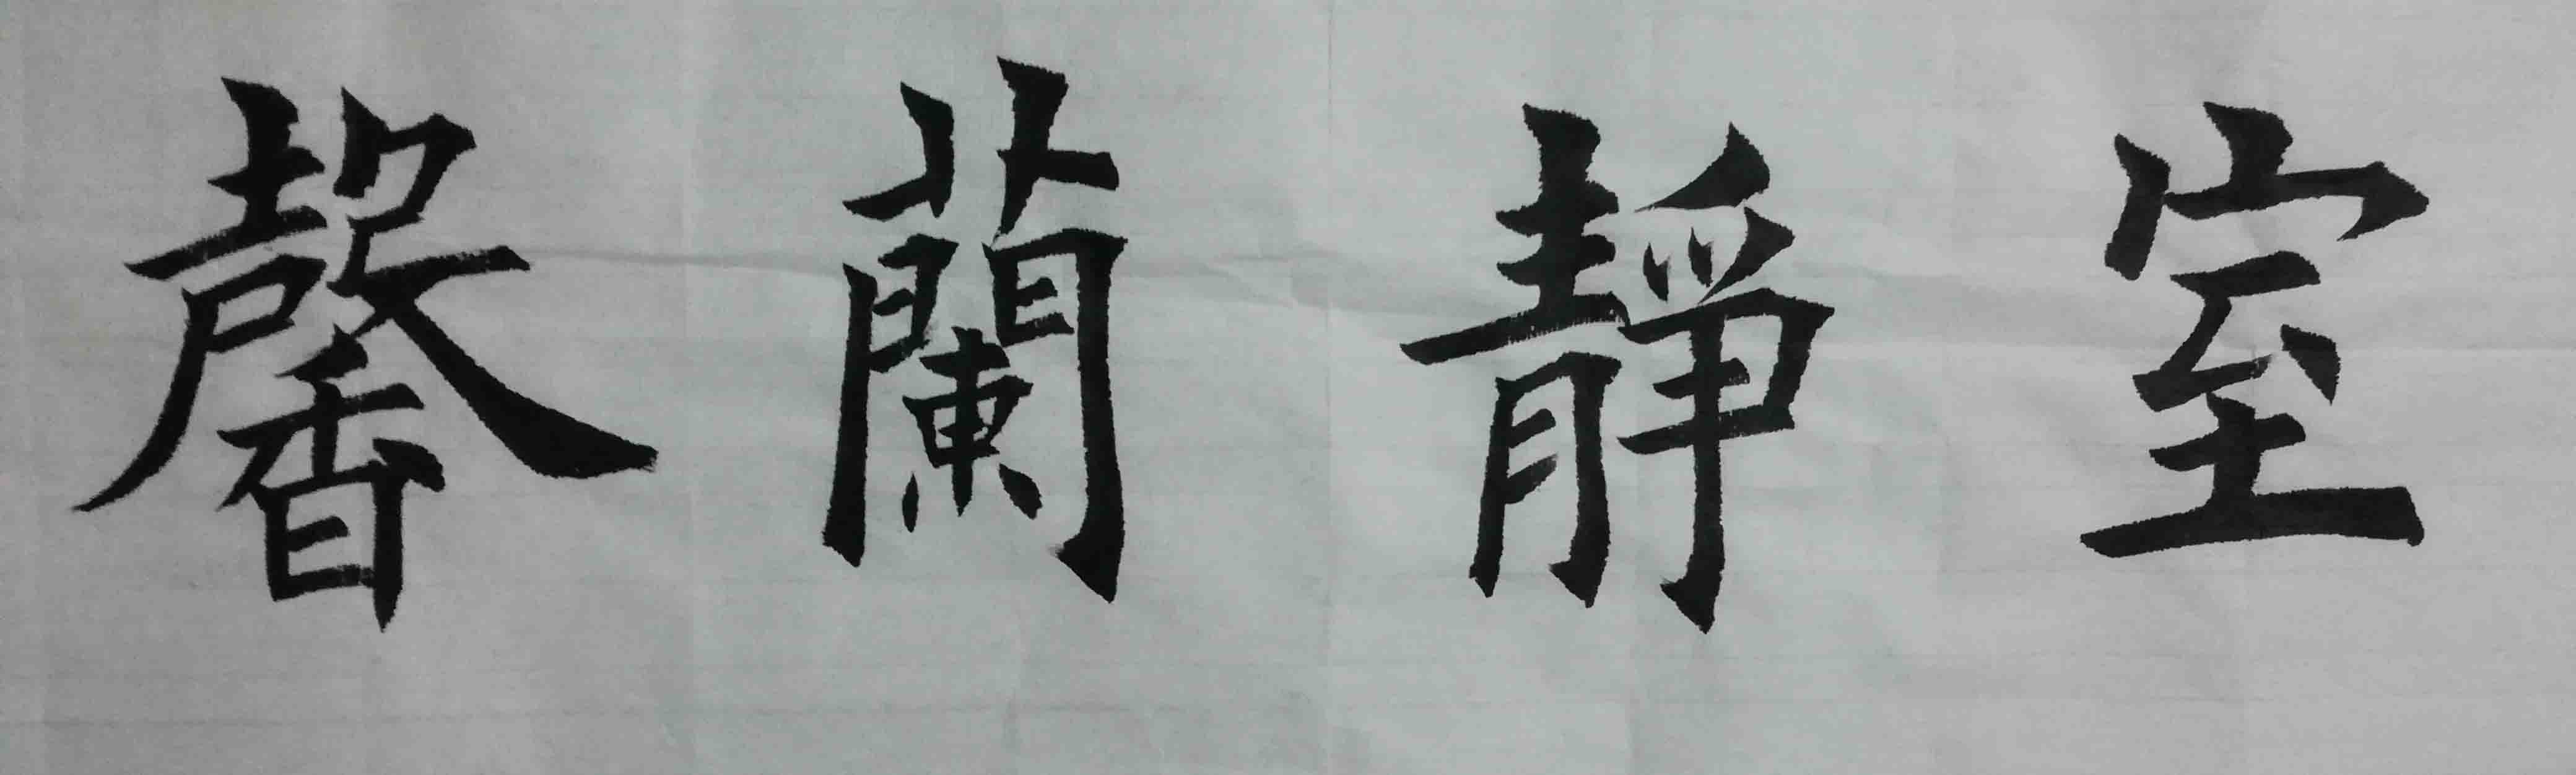 室靜蘭馨